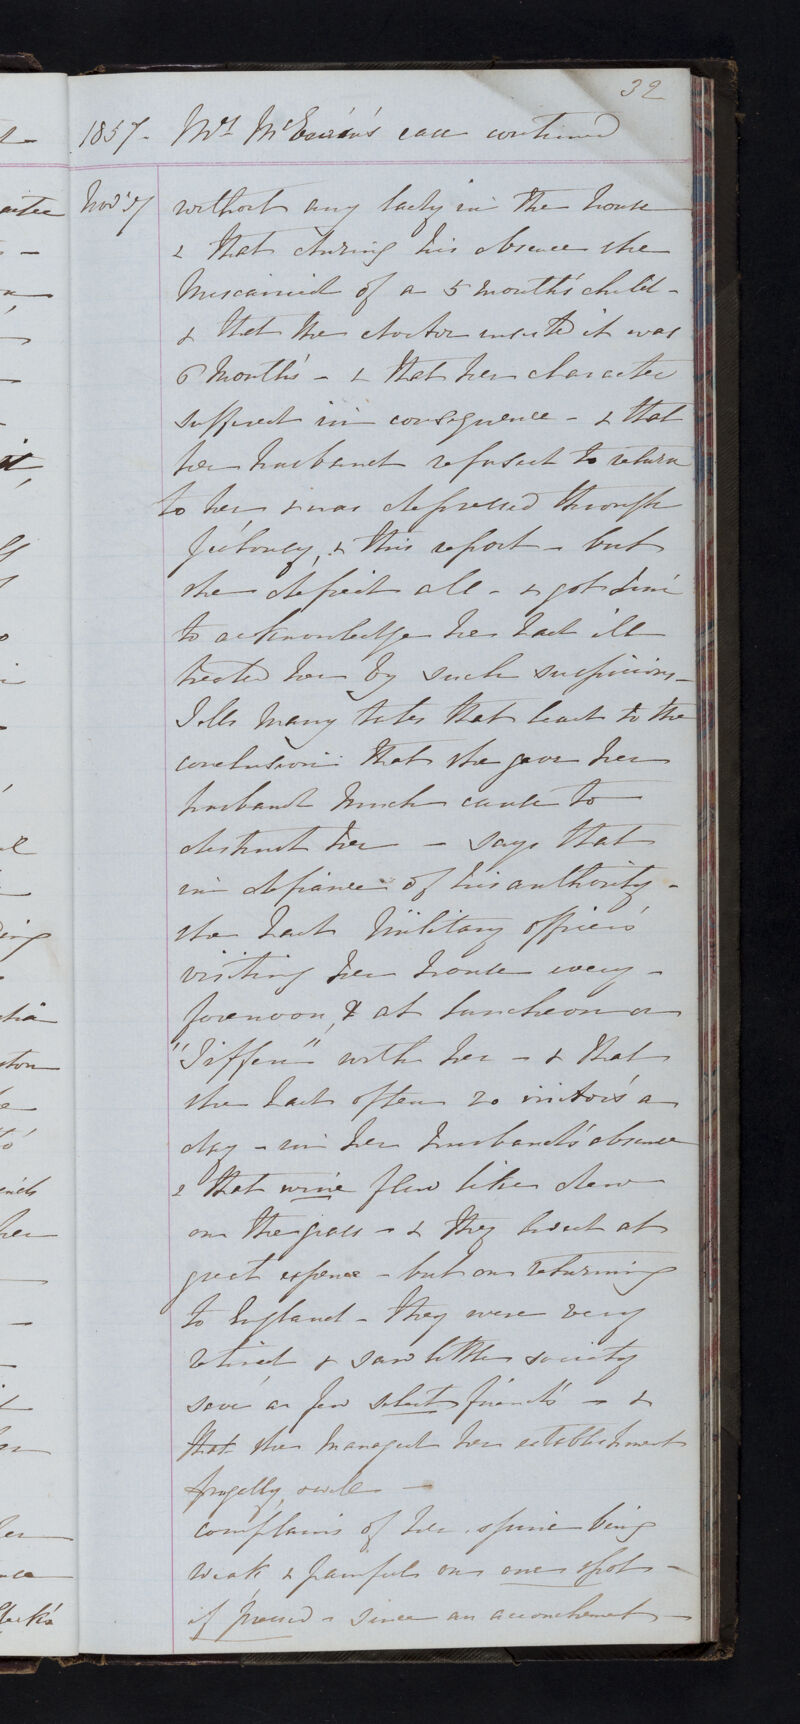 32
1857. Mrs McEwin's case continued
Nov 27 without any lady in the house
& that during his absence she
Miscarried of a 5 month's child -
& that the doctor insisted it was
6 Months' - & that her character
suffered in consequence - & that
her husband refused to return
to her & was depressed through
jealousy, & this report - but
she defied all - & got him
to acknowledge he had ill
treated her by such suspicions -
Tells many tales that lead to the
conclusion that she gave her
husband much cause to
distrust her - says that
in defiance of his authority -
she had Military officers
visiting her house every -
forenoon, & at luncheon or
"Tiffen" with her - & that
she had often 20 visitors a
day - in her husband's absence
& that wine flew like dew
on the grass - & they lived at
great expense - but on returning
to England - they were very
retired & saw little society
save a few select friends - &
that she managed her establishment
frugally, well -
complains of her spine being
weak & painful on one spot -
if pressed - since an accouchement -